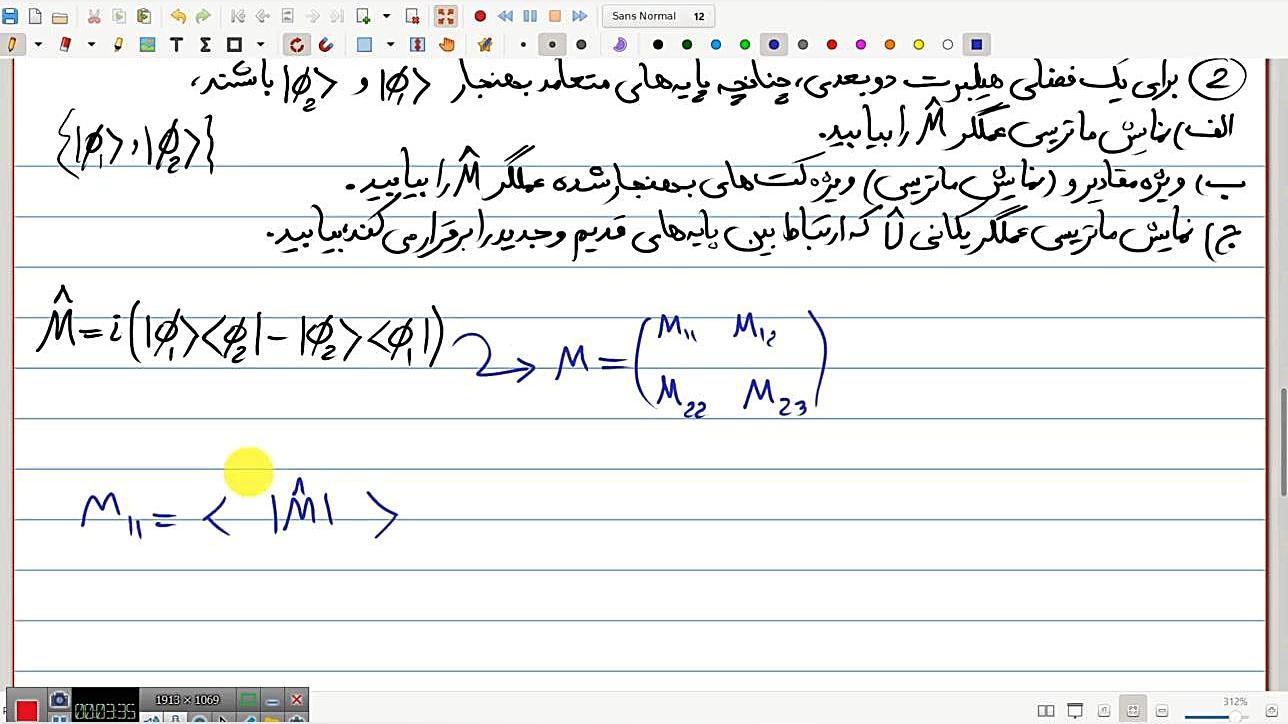 Sans Normal 12
② برای یک فضای هیلبرت دوبعدی، چنانچه پایه‌های متعامد بهنجار |ϕ₁> و |ϕ₂> باشند،
الف) نمایش ماتریسی عملگر M̂ را بیابید.
{|ϕ₁>, |ϕ₂>}
ب) ویژه مقادیر و (نمایش ماتریسی) ویژه کت‌های بهنجار شده عملگر M̂ را بیابید.
ج) نمایش ماتریسی عملگر یکانی Û که ارتباط بین پایه‌های قدیم و جدید را برقرار می‌کند، بیابید.
M̂ = i(|ϕ₁><ϕ₂| - |ϕ₂><ϕ₁|) → M = (M₁₁ M₁₂
M₂₂ M₂₃)
M₁₁ = < |M̂| >
1913 × 1069
00:03:35
312%